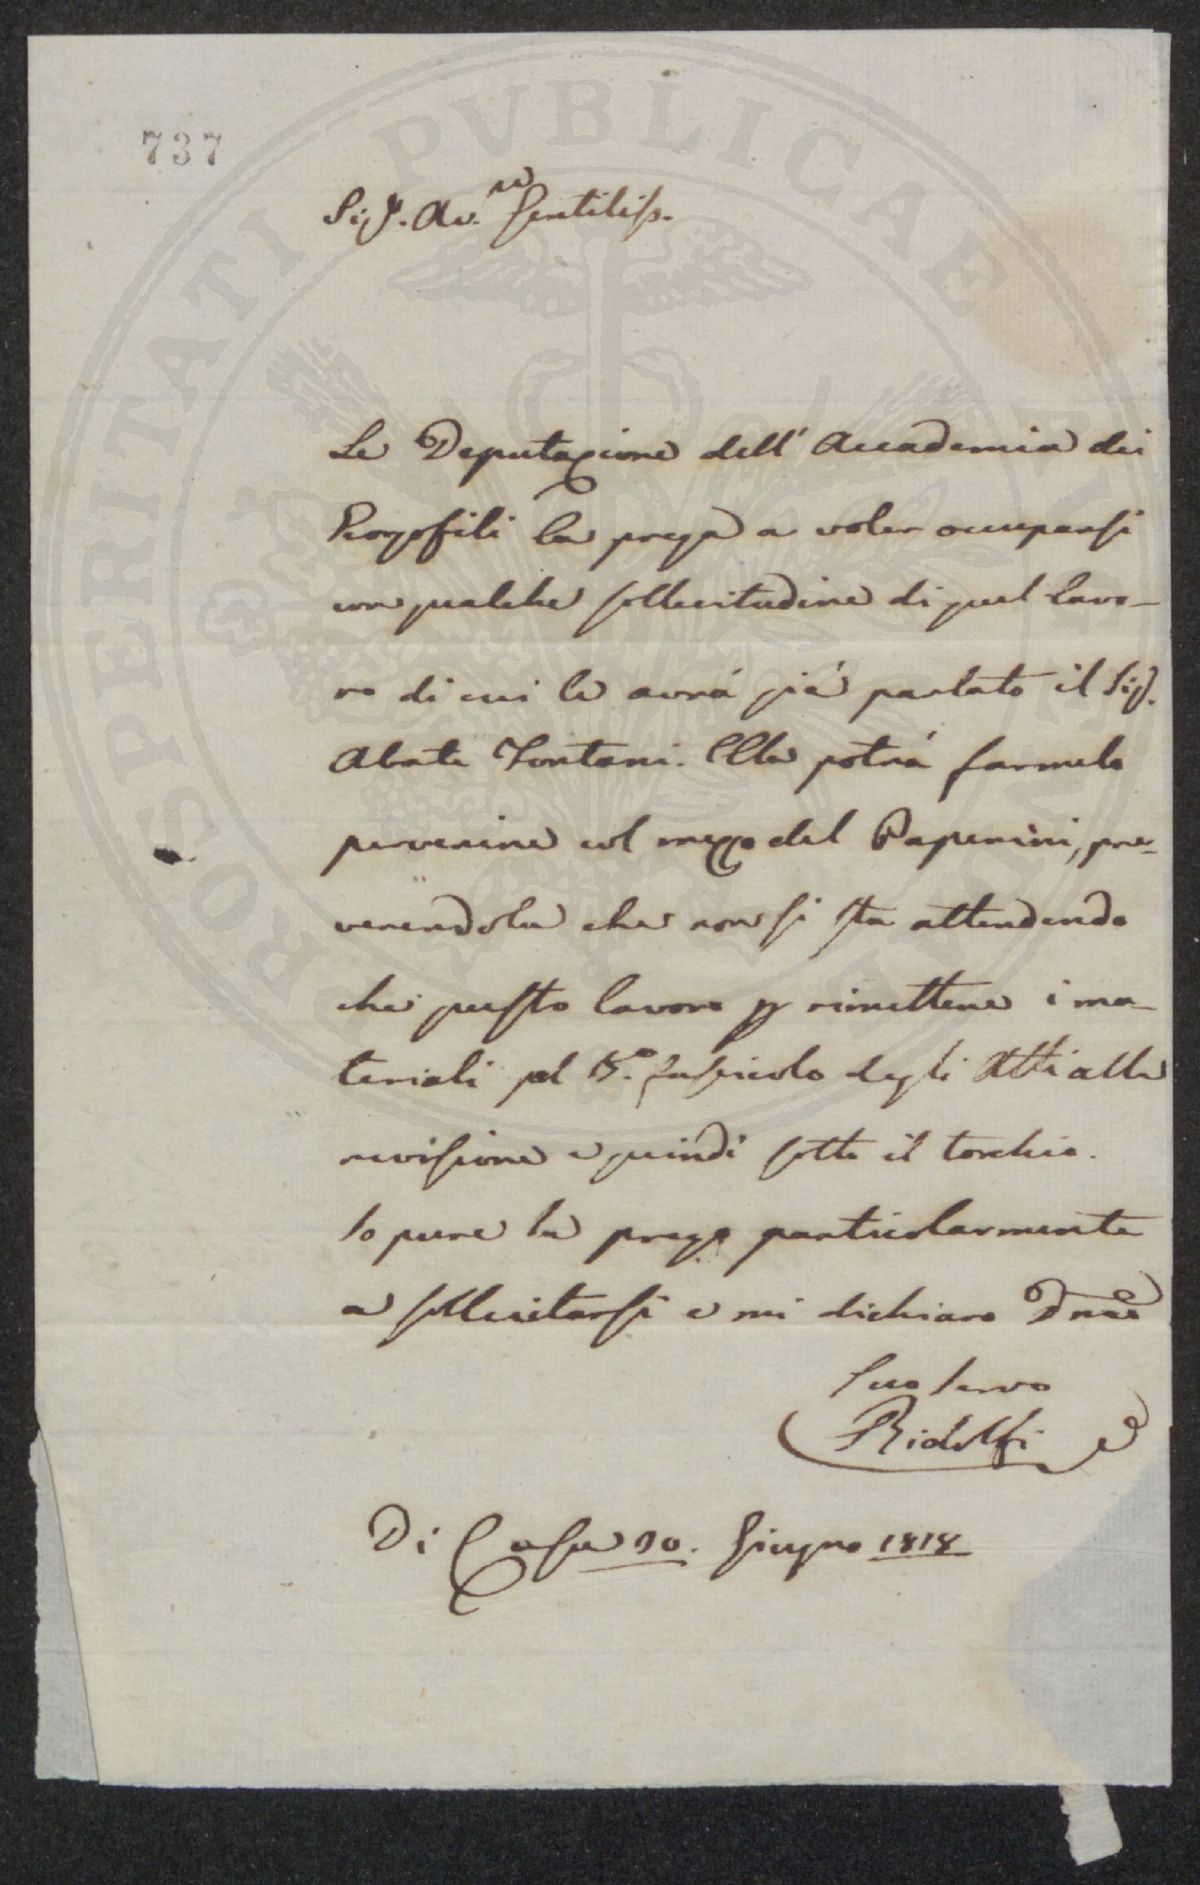 737
PROSPERITATI PVBLICAE
Sig. Av.re Gentiliss.
La Deputazione dell' Accademia dei
Georgofili la prega a voler occuparsi
con qualche sollecitudine di quel lavo-
ro di cui le avrá giá parlato il Sig.
Abate Fontani. Ella potrá farmelo
pervenire col mezzo del Paperini, pre-
venendola che non si sta attendendo
che questo lavoro p rimettere i ma-
teriali pel fascicolo degli Atti alla
revisione e quindi sotto il torchio.
Io pure la prego particolarmente
a sollecitarsi e mi dichiaro
Suo Servo
Ridolfi
Di Casa 10. Giugno 1818